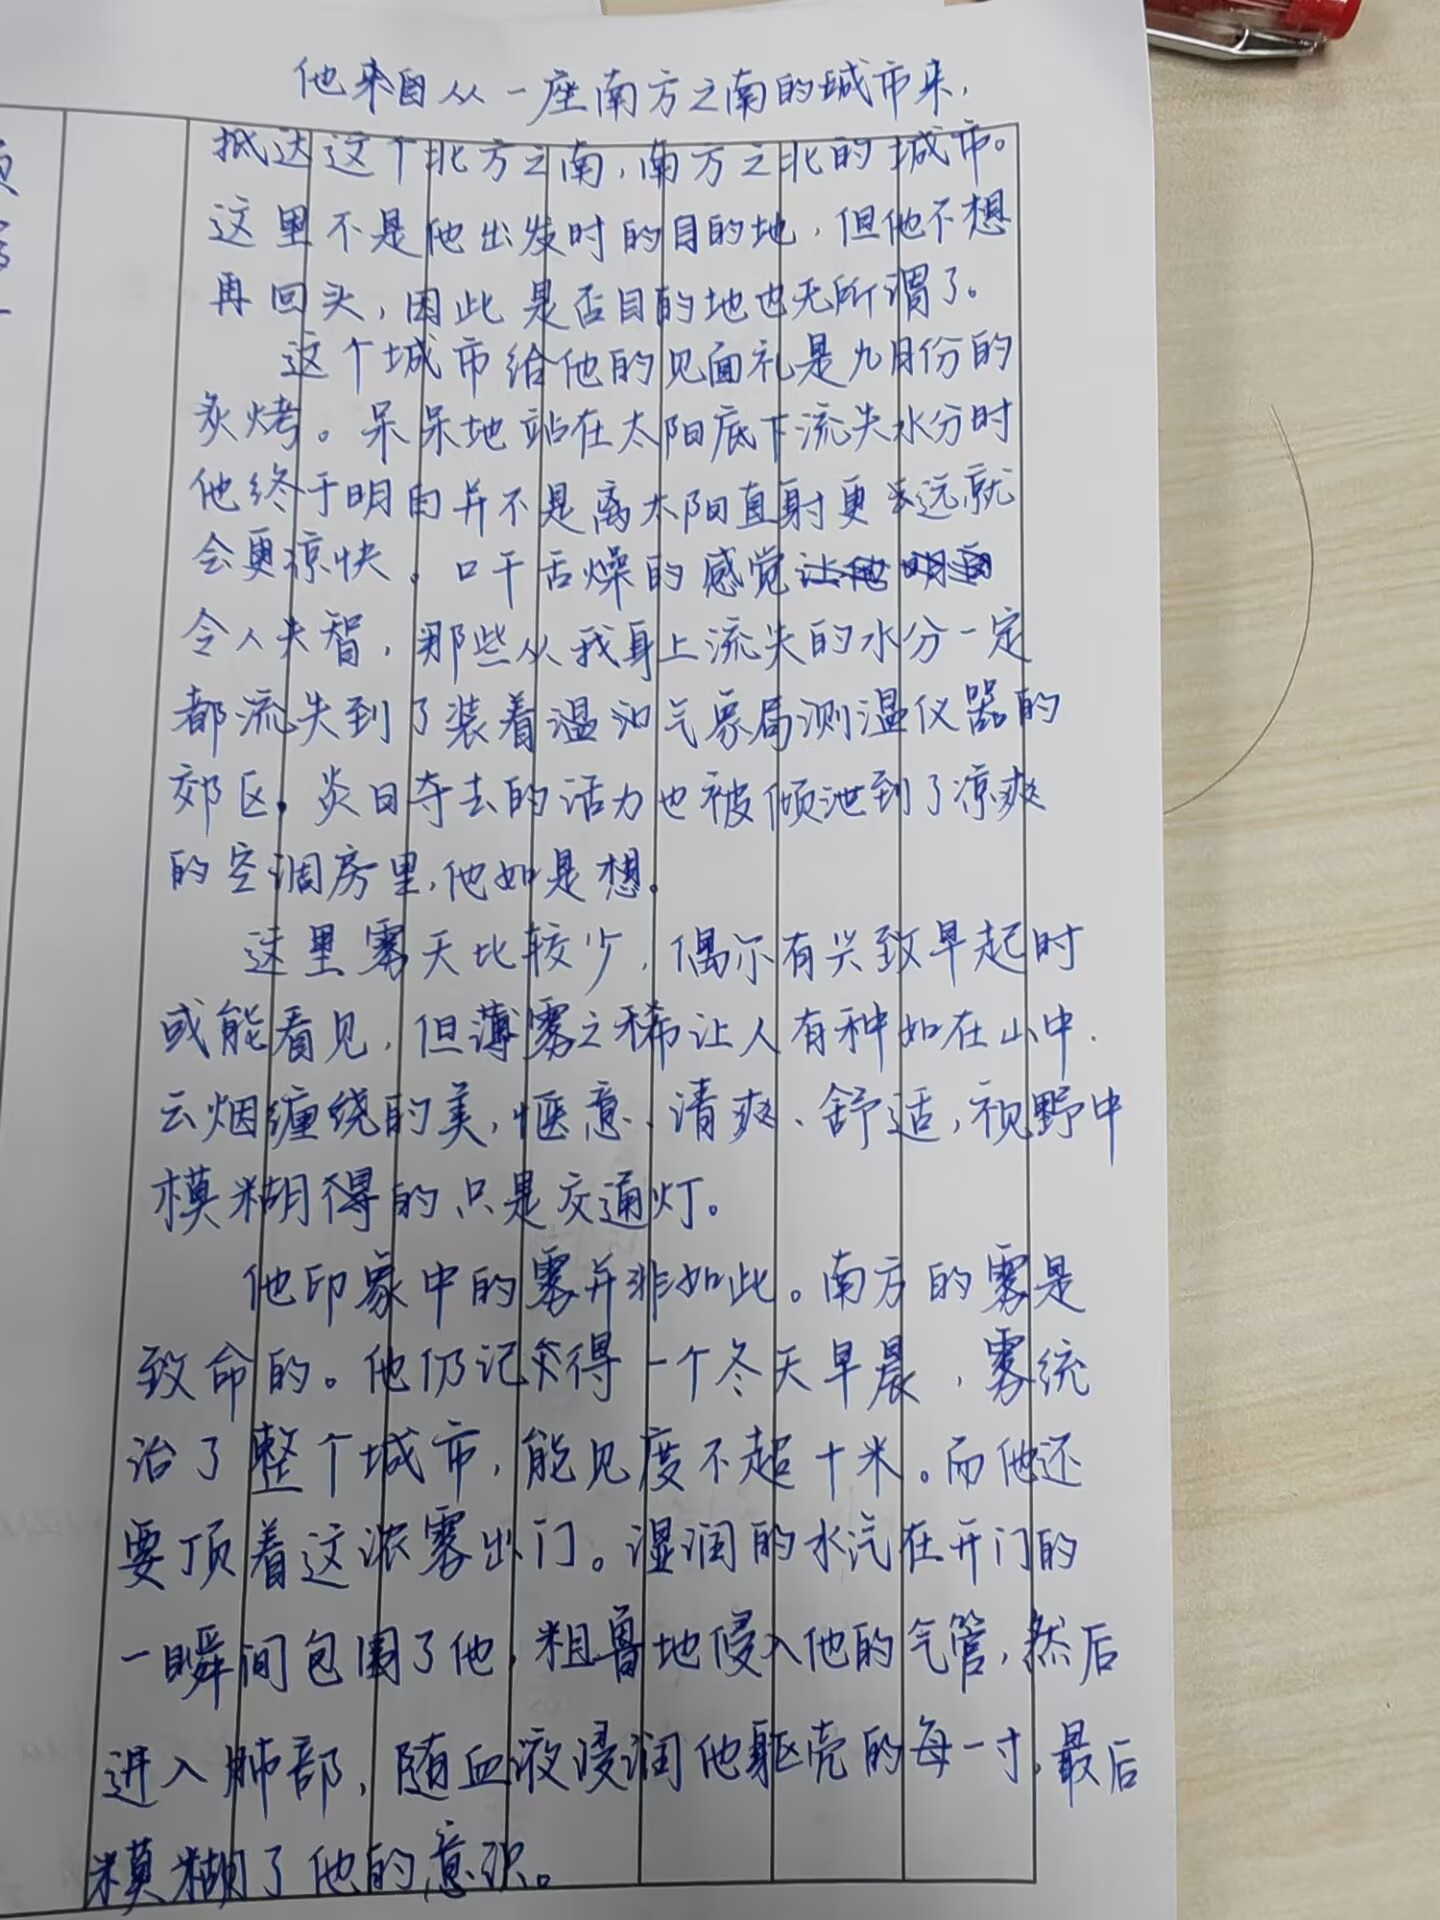 他来自从一座南方之南的城市来，
抵达这个北方之南，南方之北的城市。
这里不是他出发时的目的地，但他不想
再回头，因此是否目的地也无所谓了。
这个城市给他的见面礼是九月份的
炙烤。呆呆地站在太阳底下流失水分时
他终于明白并不是离太阳直射更远就
会更凉快。口干舌燥的感觉
令人失智，那些从我身上流失的水分一定
都流失到了装着温度气象局测温仪器的
郊区，炎日夺去的活力也被倾泄到了凉爽
的空调房里，他如是想。
这里雾天比较少，偶尔有兴致早起时
或能看见，但薄雾之稀让人有种如在山中.
云烟缠绕的美，惬意、清爽、舒适，视野中
模糊得的只是交通灯。
他印象中的雾并非如此。南方的雾是
致命的。他仍记得一个冬天早晨，雾统
治了整个城市，能见度不超十米。而他还
要顶着这浓雾出门。湿润的水汽在开门的
一瞬间包围了他，粗鲁地侵入他的气管，然后
进入肺部，随血液浸润他躯壳的每一寸，最后
模糊了他的意识。